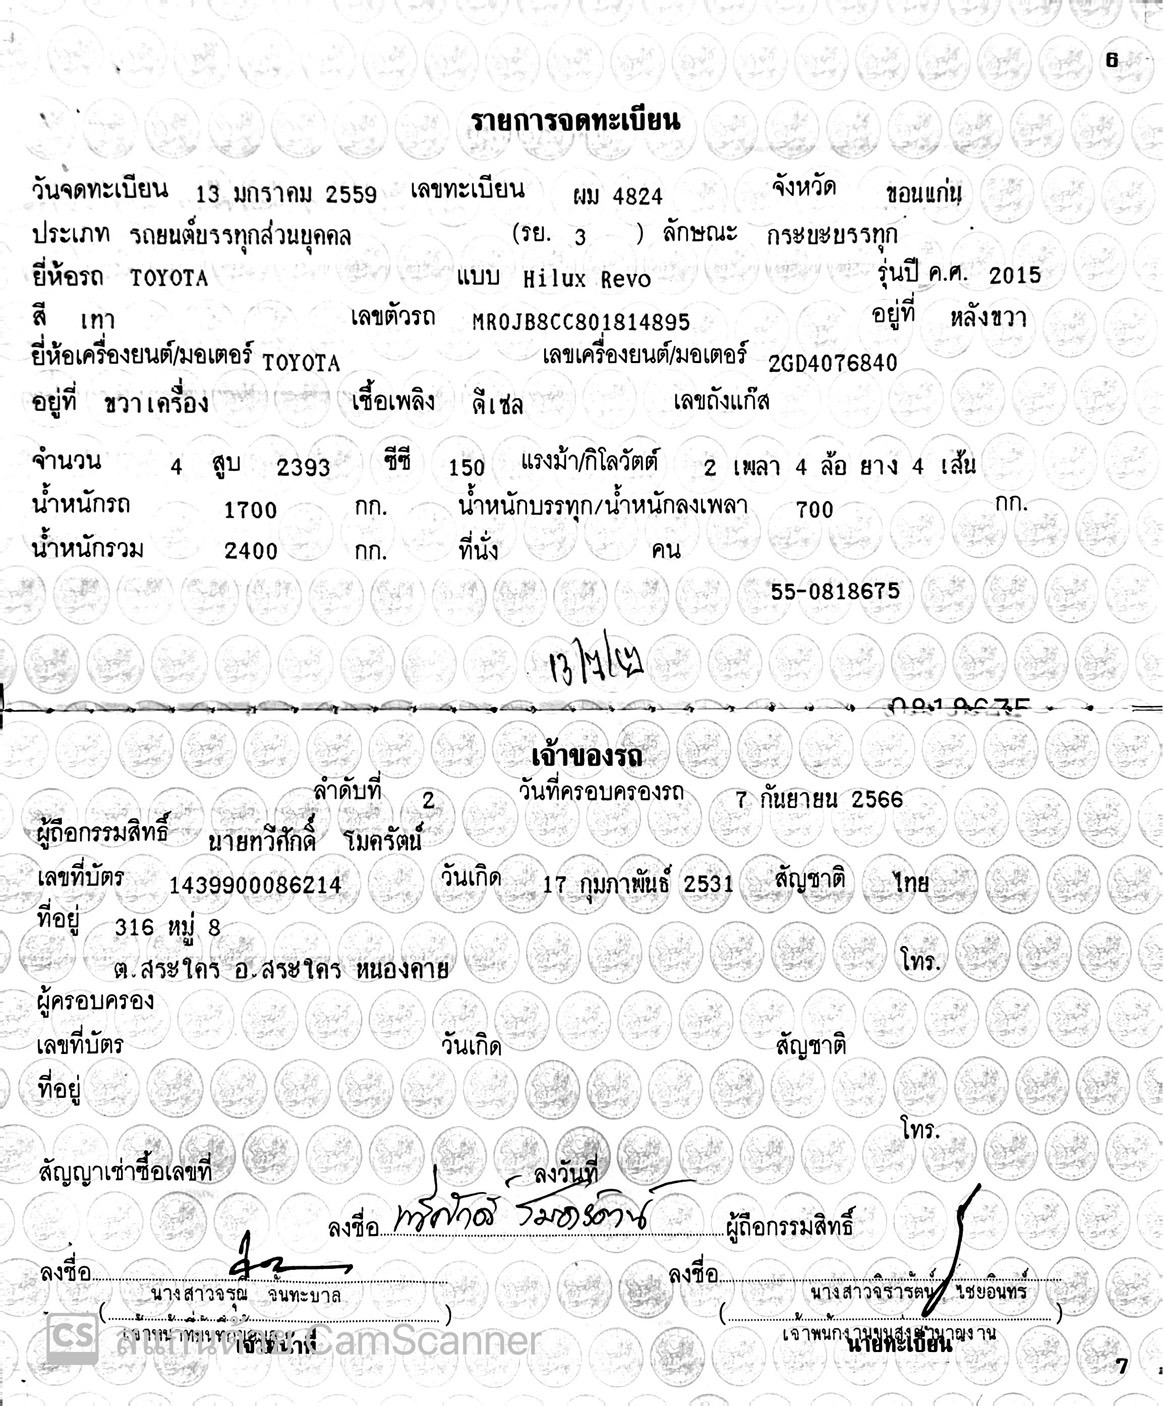 6
รายการจดทะเบียน
วันจดทะเบียน 13 มกราคม 2559 เลขทะเบียน ผม 4824 จังหวัด ขอนแก่น
ประเภท รถยนต์บรรทุกส่วนบุคคล (รย. 3 ) ลักษณะ กระบะบรรทุก
ยี่ห้อรถ TOYOTA แบบ Hilux Revo รุ่นปี ค.ศ. 2015
สี เทา เลขตัวรถ MR0JB8CC801814895 อยู่ที่ หลังขวา
ยี่ห้อเครื่องยนต์/มอเตอร์ TOYOTA เลขเครื่องยนต์/มอเตอร์ 2GD4076840
อยู่ที่ ขวาเครื่อง เชื้อเพลิง ดีเซล เลขถังแก๊ส
จำนวน 4 สูบ 2393 ซีซี 150 แรงม้า/กิโลวัตต์ 2 เพลา 4 ล้อ ยาง 4 เส้น
น้ำหนักรถ 1700 กก. น้ำหนักบรรทุก/น้ำหนักลงเพลา 700 กก.
น้ำหนักรวม 2400 กก. ที่นั่ง คน
55-0818675
0818675
เจ้าของรถ
ลำดับที่ 2 วันที่ครอบครองรถ 7 กันยายน 2566
ผู้ถือกรรมสิทธิ์ นายทวีศักดิ์ โมครัตน์
เลขที่บัตร 1439900086214 วันเกิด 17 กุมภาพันธ์ 2531 สัญชาติ ไทย
ที่อยู่ 316 หมู่ 8
ต.สระใคร อ.สระใคร หนองคาย โทร.
ผู้ครอบครอง
เลขที่บัตร วันเกิด สัญชาติ
ที่อยู่
โทร.
สัญญาเช่าซื้อเลขที่ ลงวันที่
ลงชื่อ ทวีศักดิ์ โมครัตน์ ผู้ถือกรรมสิทธิ์
ลงชื่อ ลงชื่อ
นางสาวจรุณี จันทะบาล นางสาวจิรารัตน์ ไชยอินทร์
( ) ( )
เจ้าหน้าที่บันทึกข้อมูล เจ้าพนักงานขนส่งชำนาญงาน
เจ้าหน้าที่ นายทะเบียน
CS สแกนด้วย CamScanner
7